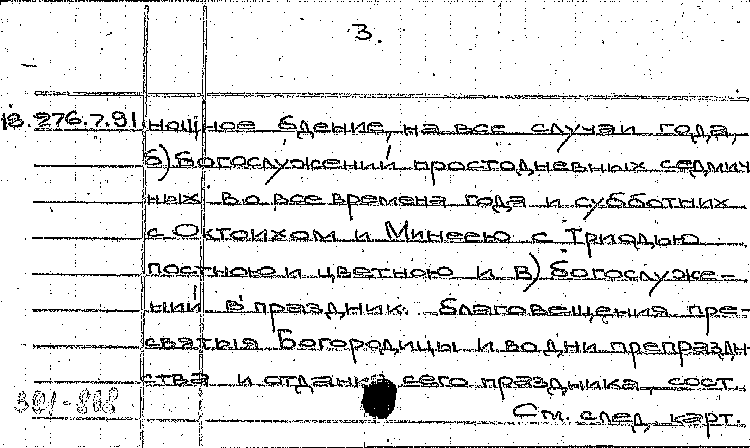 3.
18.276.7.91. нощное бдение, на все случаи года,
б) богослужений простодневных седмич
ных во все времена года и субботних
с Октоихом и Минеею с Триодью
постною и цветною и в) богослуже-
ний в праздник. благовещения пре-
святыя Богородицы и во дни препраздн
ства и отданка сего праздника, сост.
См. след. карт.